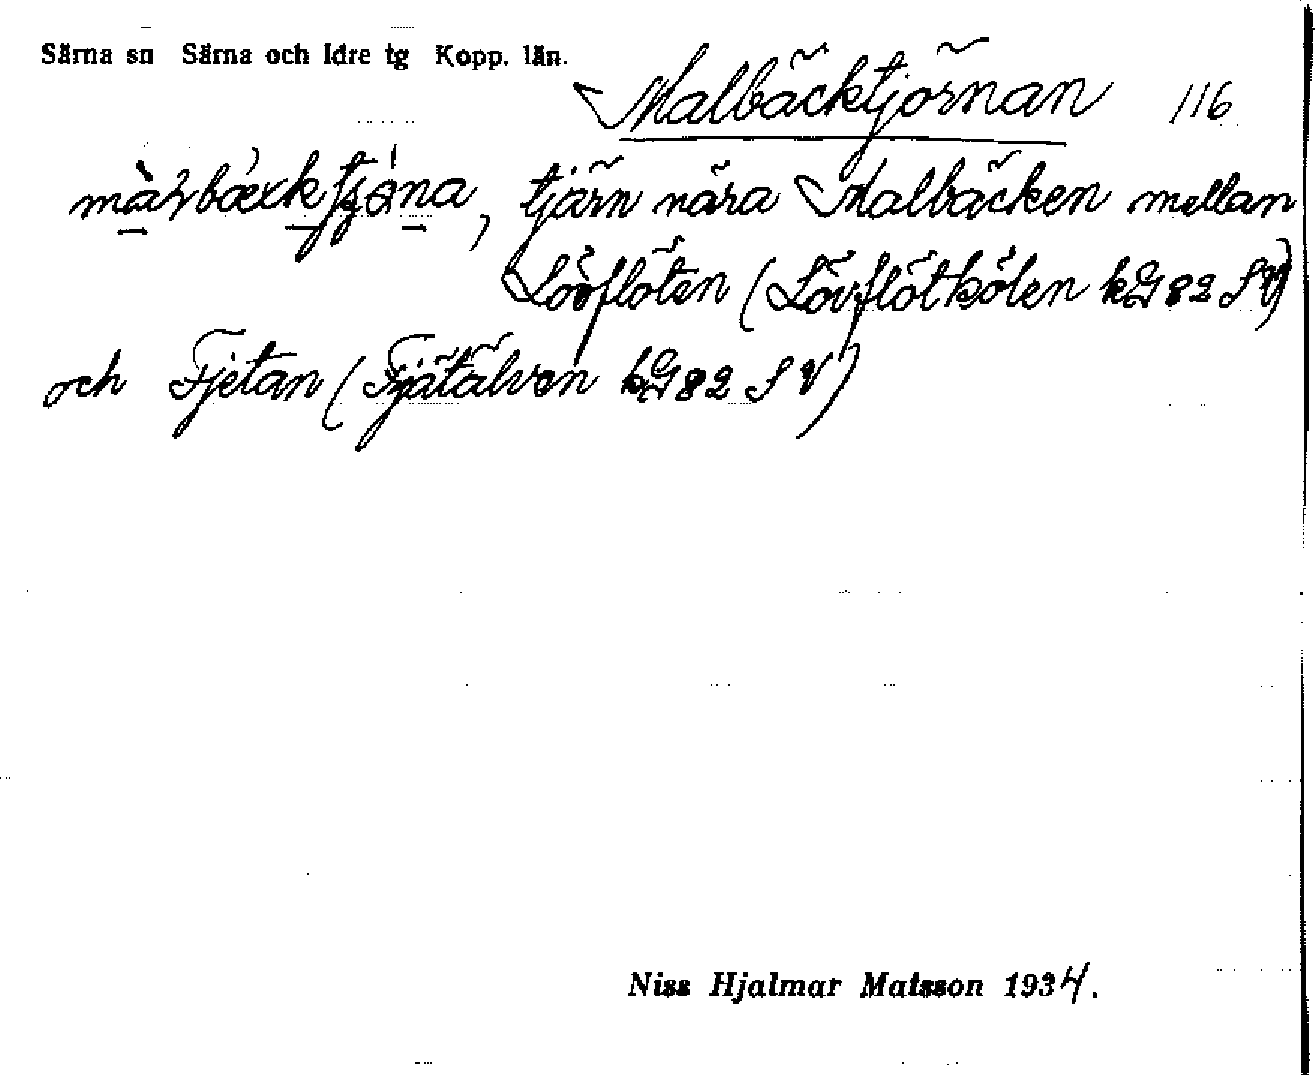 Särna sn Särna och Idre tg Kopp. län.
Malbäcktjörnan 116
tjärn nära Malbäcken mellan
Lövflöten (Lövflötkölen kG82 SV)
och Fjetan (Fjätälven kG82 SV)
Niss Hjalmar Matsson 1934.